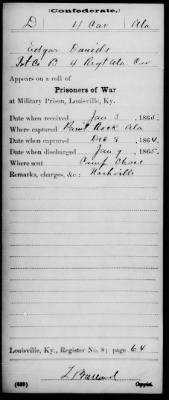 (Confederate.)
D 4 Cav Ala
Edgar Daniels
Pvt Co. B 4 Regt Ala Cav
Appears on a roll of
Prisoners of War
at Military Prison, Louisville, Ky.
Date when received Jan 3 , 1865.
Where captured Paint Rock Ala
Date when captured Dec 8 , 1864.
Date when discharged Jan 9 , 1865.
Where sent Camp Chase
Remarks, charges, &c.: Nashville
Louisville, Ky., Register No. 8; page 64
(639) Copyist.